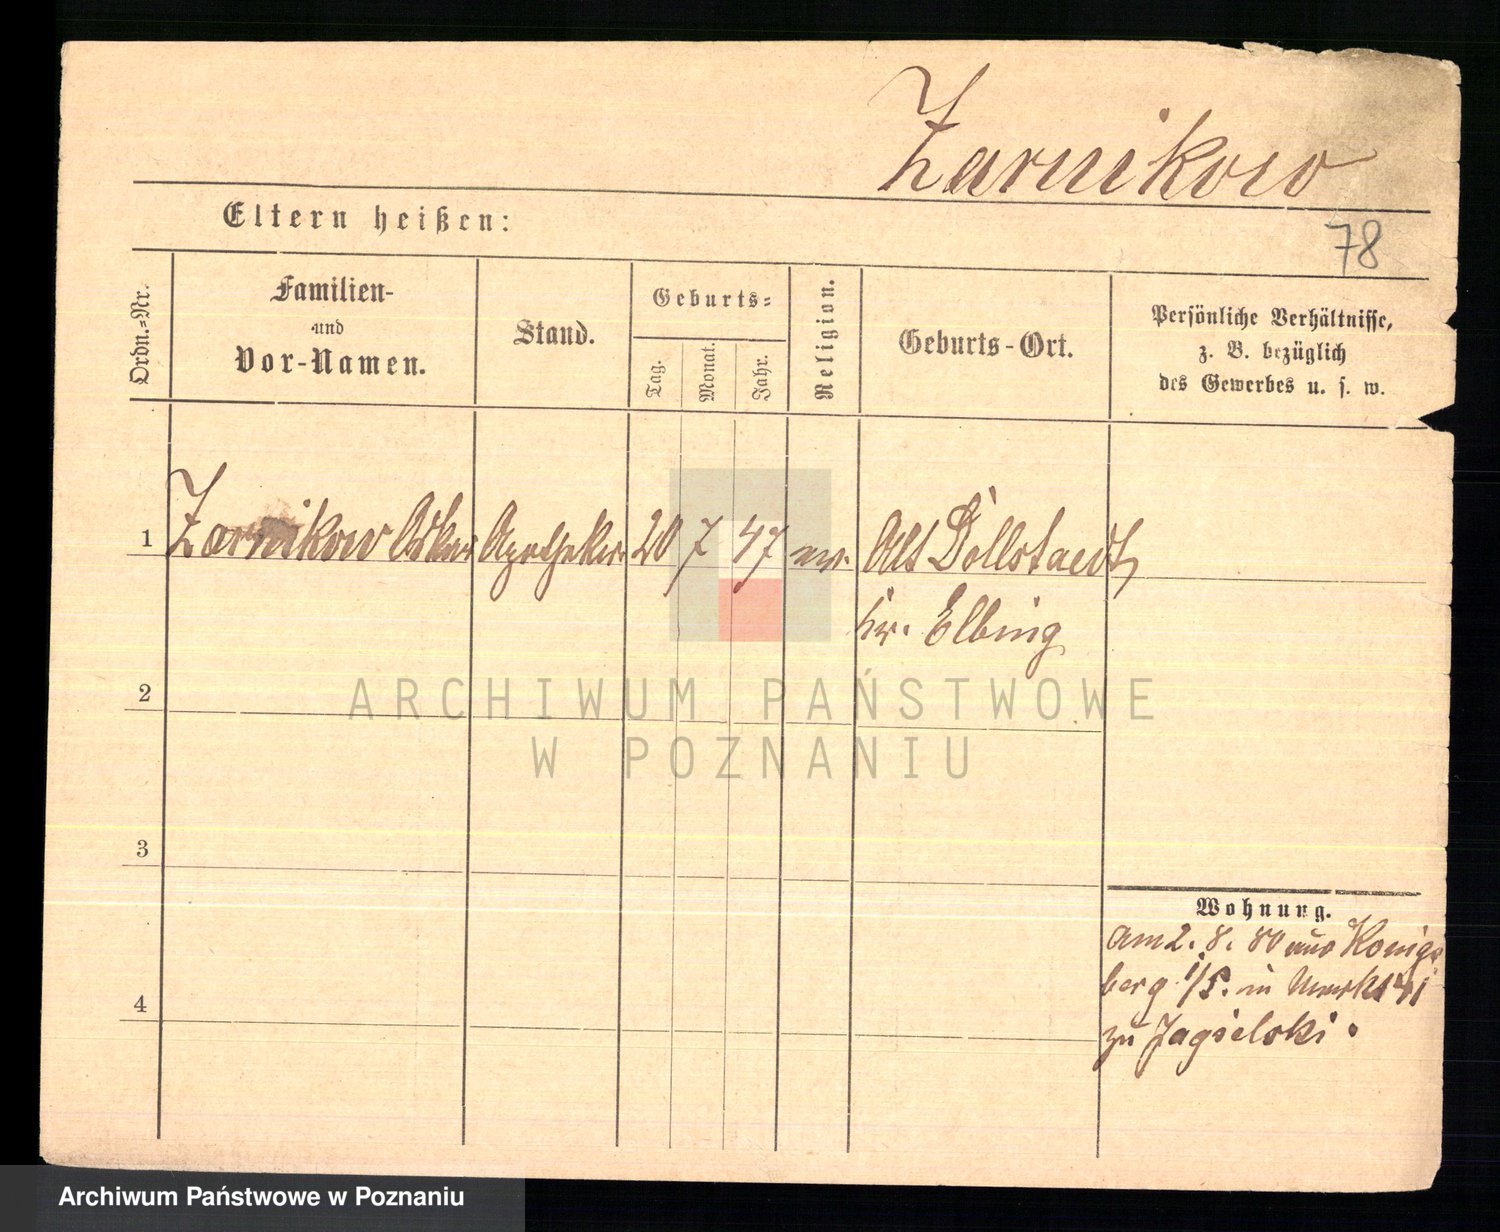 Zarnikow
Eltern heißen:
78
Ordn.-Nr.
Familien-
und
Vor-Namen.
Stand.
Geburts-
Tag.
Monat.
Jahr.
Religion.
Geburts-Ort.
Persönliche Verhältnisse,
z. B. bezüglich
des Gewerbes u. s. w.
1 Zarnikow Oskar Apotheker 20 7 47 ev. Alt Dollstaedt
kr. Elbing
2
ARCHIWUM PAŃSTWOWE
W POZNANIU
3
Wohnung.
am 2. 8. 80 aus Königs
berg i/P. in Markt 41
4
zu Jagielski.
Archiwum Państwowe w Poznaniu